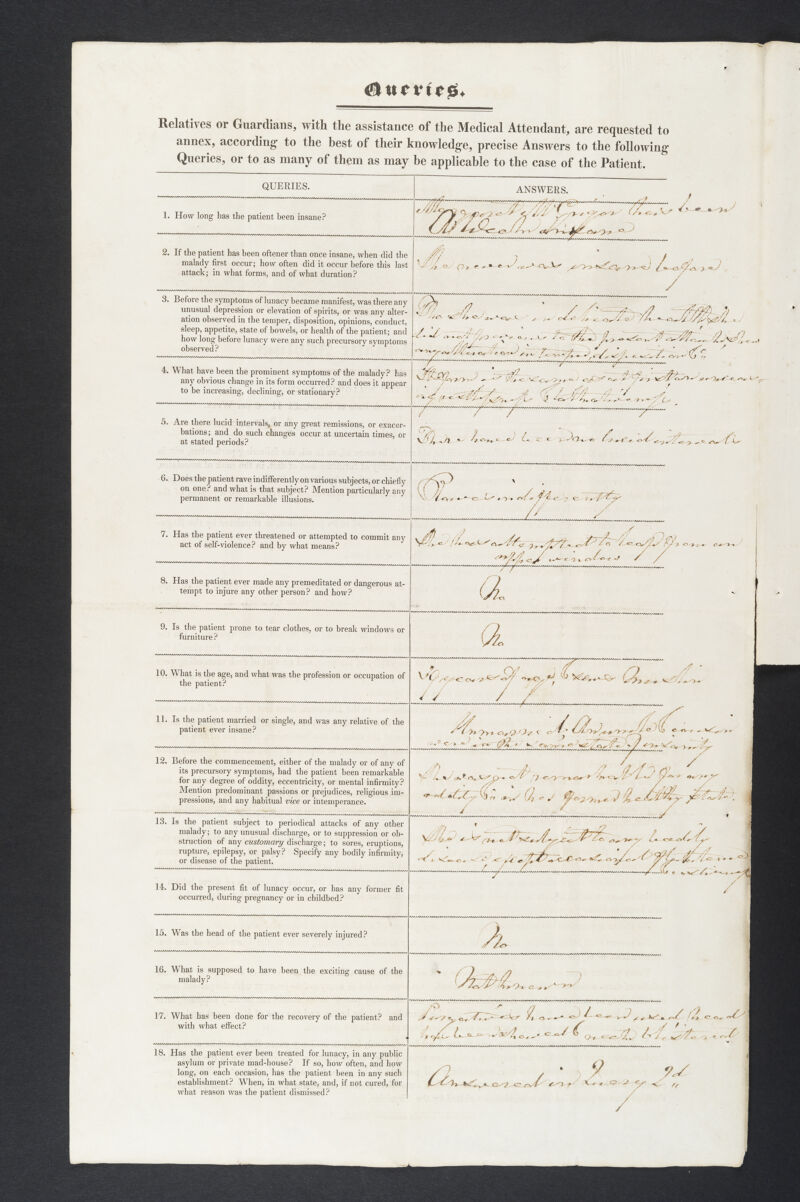 Queries.
Relatives or Guardians, with the assistance of the Medical Attendant, are requested to
annex, according to the best of their knowledge, precise Answers to the following
Queries, or to as many of them as may be applicable to the case of the Patient.
QUERIES.
ANSWERS.
1. How long has the patient been insane?
Margaret McGrigor has been
A Week insane
2. If the patient has been oftener than once insane, when did the
malady first occur; how often did it occur before this last
attack; in what forms, and of what duration?
She never was insane before.
3. Before the symptoms of lunacy became manifest, was there any
unusual depression or elevation of spirits, or was any alter-
ation observed in the temper, disposition, opinions, conduct,
sleep, appetite, state of bowels, or health of the patient; and
how long before lunacy were any such precursory symptoms
observed?
Tho she was in delicate health she
did not previous to the present attack shew
any alteration in temper, disposition &c
4. What have been the prominent symptoms of the malady? has
any obvious change in its form occurred? and does it appear
to be increasing, declining, or stationary?
Its form is the same as at first
restlessness
5. Are there lucid intervals, or any great remissions, or exacer-
bations; and do such changes occur at uncertain times, or
at stated periods?
There have been no lucid intervals
6. Does the patient rave indifferently on various subjects, or chiefly
on one? and what is that subject? Mention particularly any
permanent or remarkable illusions.
Raves indifferently
7. Has the patient ever threatened or attempted to commit any
act of self-violence? and by what means?
She has attempted to leap from an
upper window
8. Has the patient ever made any premeditated or dangerous at-
tempt to injure any other person? and how?
No
9. Is the patient prone to tear clothes, or to break windows or
furniture?
No
10. What is the age, and what was the profession or occupation of
the patient?
years of age, & sews Muslin
11. Is the patient married or single, and was any relative of the
patient ever insane?
Unmarried. An uncle & cousin
were in the same state of insanity
12. Before the commencement, either of the malady or of any of
its precursory symptoms, had the patient been remarkable
for any degree of oddity, eccentricity, or mental infirmity?
Mention predominant passions or prejudices, religious im-
pressions, and any habitual vice or intemperance.
She was not remarkable for any
oddity in her former healthy state.
13. Is the patient subject to periodical attacks of any other
malady; to any unusual discharge, or to suppression or ob-
struction of any customary discharge; to sores, eruptions,
rupture, epilepsy, or palsy? Specify any bodily infirmity,
or disease of the patient.
She is not subject to any bodily
disease, except occasional
14. Did the present fit of lunacy occur, or has any former fit
occurred, during pregnancy or in childbed?
15. Was the head of the patient ever severely injured?
No
16. What is supposed to have been the exciting cause of the
malady?
Not known
17. What has been done for the recovery of the patient? and
with what effect?
Purgatives have been used head
has been shaved & neck blistered
18. Has the patient ever been treated for lunacy, in any public
asylum or private mad-house? If so, how often, and how
long, on each occasion, has the patient been in any such
establishment? When, in what state, and, if not cured, for
what reason was the patient dismissed?
Answered in Query 2d